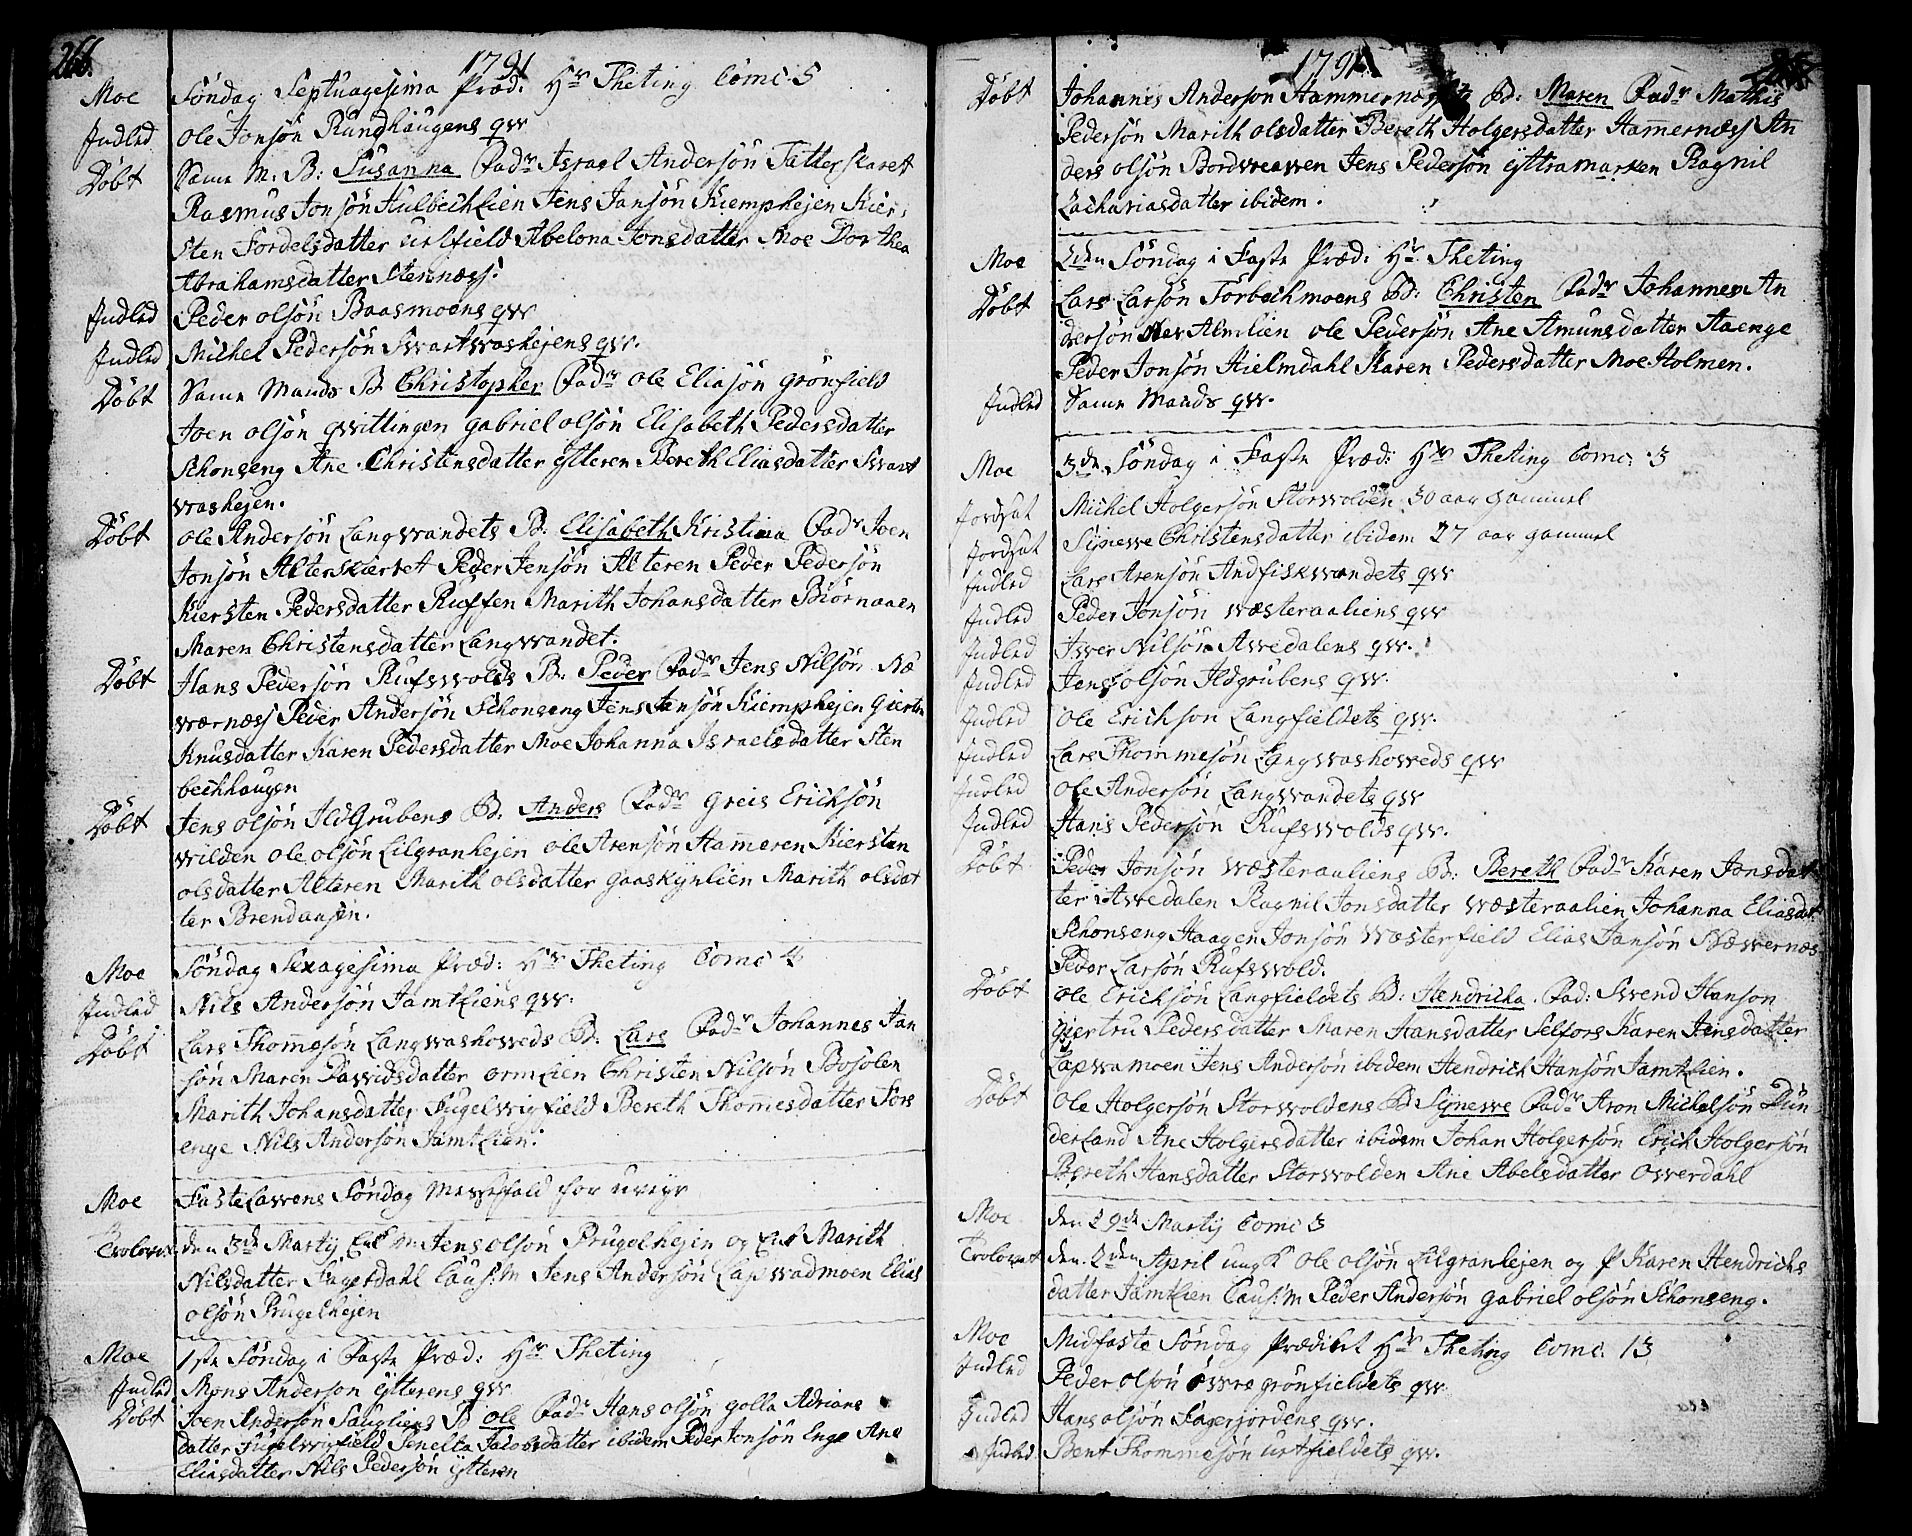 266.
1791
Moe Söndag Septuagesima Præd: Hr Theting Comc: 5
Jndled Ole Jonsön Rundhaugens qvv
Döbt Same M. B: Susanna Fadr Israel Andersön Tatterskaret
Rasmus Jonsön Hulbechlien Jens Jansön Kiemphejen Kier,
sten Fordelsdatter urtfield Abelona Jonsdatter Moe Dorthea
Abrahamsdatter Stennæss.
Jndled Peder olsön Baasmoens qvv
Jndled Michel Pedersön Svartvashejens qvv.
Döbt Same Mands B Christopher Fadr Ole Eliasön grönfield
Joen olsön qvittingen gabriel olsön Elisabeth Pedersdatter
Schonseng Ane Christensdatter ytteren Bereth Eliasdatter Svart
vashejen.
Döbt Ole Andersön Langvandets B: Elisabeth Kristina Fadr Joen
Jonsön Alterskarvet Peder Jensön Alteren Peder Pedersön
Kiersten Pedersdatter Ruffen Marith Johansdatter Biörnaaen
Maren Christensdatter Langvandet.
Döbt Hans Pedersön Rufsvolds B: Peder Fadr Jens Nilsön Næ
værnæss Peder Andersön Schonseng Jens Jansön Kiemphejen giertru
Knusdatter Karen Pedersdatter Moe Johanna Israelsdatter Sten
bechhaugen
Döbt Jens olsön Jldgrubens B: Anders Fadr Greis Erichsön
vilden ole olsön Lilgranhejen ole Arensön Hameren Kiersten
olsdatter Alteren Marith olsdatter gaaskynlien Marith olsdat
ter Brendaasen.
Moe Söndag Sexagesima Præd: Hr Theting Comc 4
Jndled Nils Andersön Jamtliens qvv.
Döbt Lars Thomesön Langvashoveds B: Lars Fadr Johannes Jan
sön Maren Davidsdatter ormlien Christen Nilsön Bosolen
Marith Johansdatter Fugelvrigfield Bereth Thomesdatter Fors
enge Nils Andersön Jamtlien.
Moe Fastelavens Söndag Messefald for uveyr
Trolovet den 3de Martij Enk M: Jens olsön Prugelhejen og Enk Marith
Nilsdatter Fagerdahl Caus: M Jens Andersön Lapvadmoen Elias
olsön Prugelhejen
Moe 1ste Söndag i Faste Præd: Hr Theting
Jndled Mons Anderson ytterens qvv
Döbt Joen Andersön Saugliens B Ole Fadr Hans olsön golla Adrians
datter Fugelvrigfield Penella Jacobsdatter ibidem Peder Jonsön Enge Ane
Eliasdatter Nils Pedersön ytteren
1791
Döbt Johannes Anderson Hammernæss B: Maren Fadr Mathis
Pedersön Marith olsdatter Bereth Holgersdatter Hamernæss An
ders olsön Bordvreaven Jens Pedersön yttramarken Ragnil
Zachariasdatter ibidem.
Moe 2den Söndag i Faste Præd: Hr. Theting
Döbt Lars Larsön Torbechmoens B: Christen Fadr Johannes An
dersön Almlien ole Pedersön Ane Amunsdatter Aaenge
Peder Jonsön Hielmdahl Karen Pedersdatter Moe-Holmen.
Jndled Same Mands qvv.
Moe 3de Söndag i Faste Præd: Hr Theting Comc: 3
Jordsat Michel Holgersön Storvolden 30 aar gammel
Jordsat Synevve Christensdatter ibidem 27 aar gammel
Jndled Lars Arensön Andfiskvandets qvv
Jndled Peder Jonsön væsteraaliens qvv
Jndled Jver Nilsön Avedalens qvv.
Jndled Jens olsön Jldgrubens qvv.
Jndled Ole Erichson Langfieldets qvv.
Jndled Lars Thommesön Langvashoveds qvv
Jndled Ole Andersön Langvandets qvv
Jndled Hans Pedersön Rufsvolds qvv.
Döbt Peder Jonsön væsteraaliens B: Bereth Fadr Karen Jonsdat
ter i Avedalen Ragnil Jonsdatter væsteraalien Johanna Eliasdat
Schonseng Haagen Jonsön væsterfield Elias Jansön Nævernæs
Peder Larsön Rufsvold.
Döbt Ole Erichsön Langfieldets B: Hendricka. Fad: Svend Hanson
giertru Pedersdatter Maren Hansdatter Selfors Karen Jensdatter
Lapvamoen Jens Andersön ibidem Hendrich Hansön Jamtlien.
Döbt Ole Holgersön Storvoldens B Synevve Fadr Aron Michelsön Dun
derland Ane Holgersdatter ibidem Johan Holgersön Erich Holgersön
Bereth Hansdatter Storvolden Ane Abelsdatter Overdahl
Moe den 29de Martij Comc 3
Trolovet den 2den April ung K Ole olsön Lilgranhejen og P Karen Hendrichs
datter Jamtlien Caus: M Peder Andersön gabriel olsön Schonseng.
Moe Midfaste Söndag Prædiket Hr Theting Comc. 13
Jndled Peder olsön övre grönfieldets qvv
Jndled Hans olsön Fagerjordens qvv.
Jndled Bent Thommesön urtfieldets qvv.